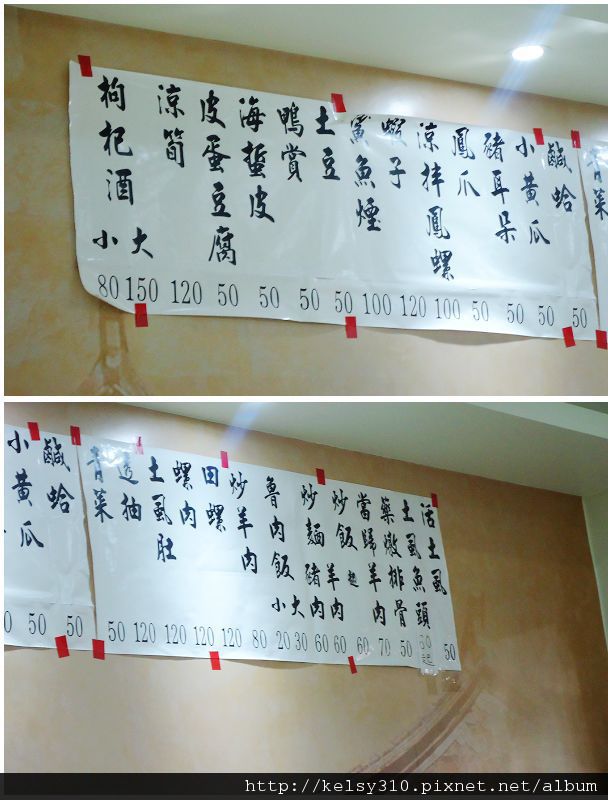 青菜
鹹蛤
小黃瓜
豬耳朵
鳳爪
涼拌鳳螺
蝦子
魚煙
土豆
鴨賞
海蜇皮
皮蛋豆腐
涼筍
枸杞酒
小 大
80 150 120 50 50 50 50 100 120 100 50 50 50 50
活土虱
土虱魚頭
藥燉排骨
當歸羊肉
起
炒飯 羊肉
炒麵 豬肉
魯肉飯
小 大
炒羊肉
田螺
螺肉
土虱肚
透抽
青菜
鹹蛤
小黃瓜
0 50 50 50 120 120 120 120 80 20 30 60 60 60 70 50 50起 50
http://kelsy310.pixnet.net/album